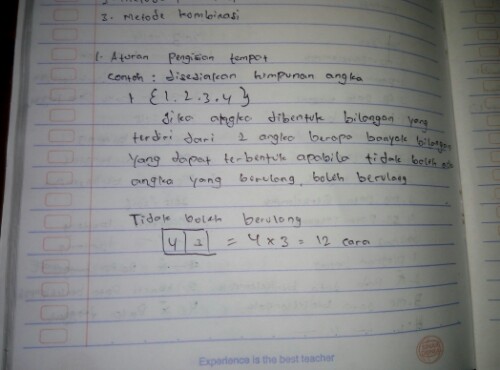 3. Metode kombinasi
1. Aturan pengisian tempat
contoh : disediakan himpunan angka
{1.2.3.4}
Jika angka dibentuk bilangan yang
terdiri dari 2 angka berapa banyak bilangan
yang dapat terbentuk apabila tidak boleh ada
angka yang berulang, boleh berulang
Tidak boleh berulang
4 3 = 4 x 3 = 12 cara
Experience is the best teacher